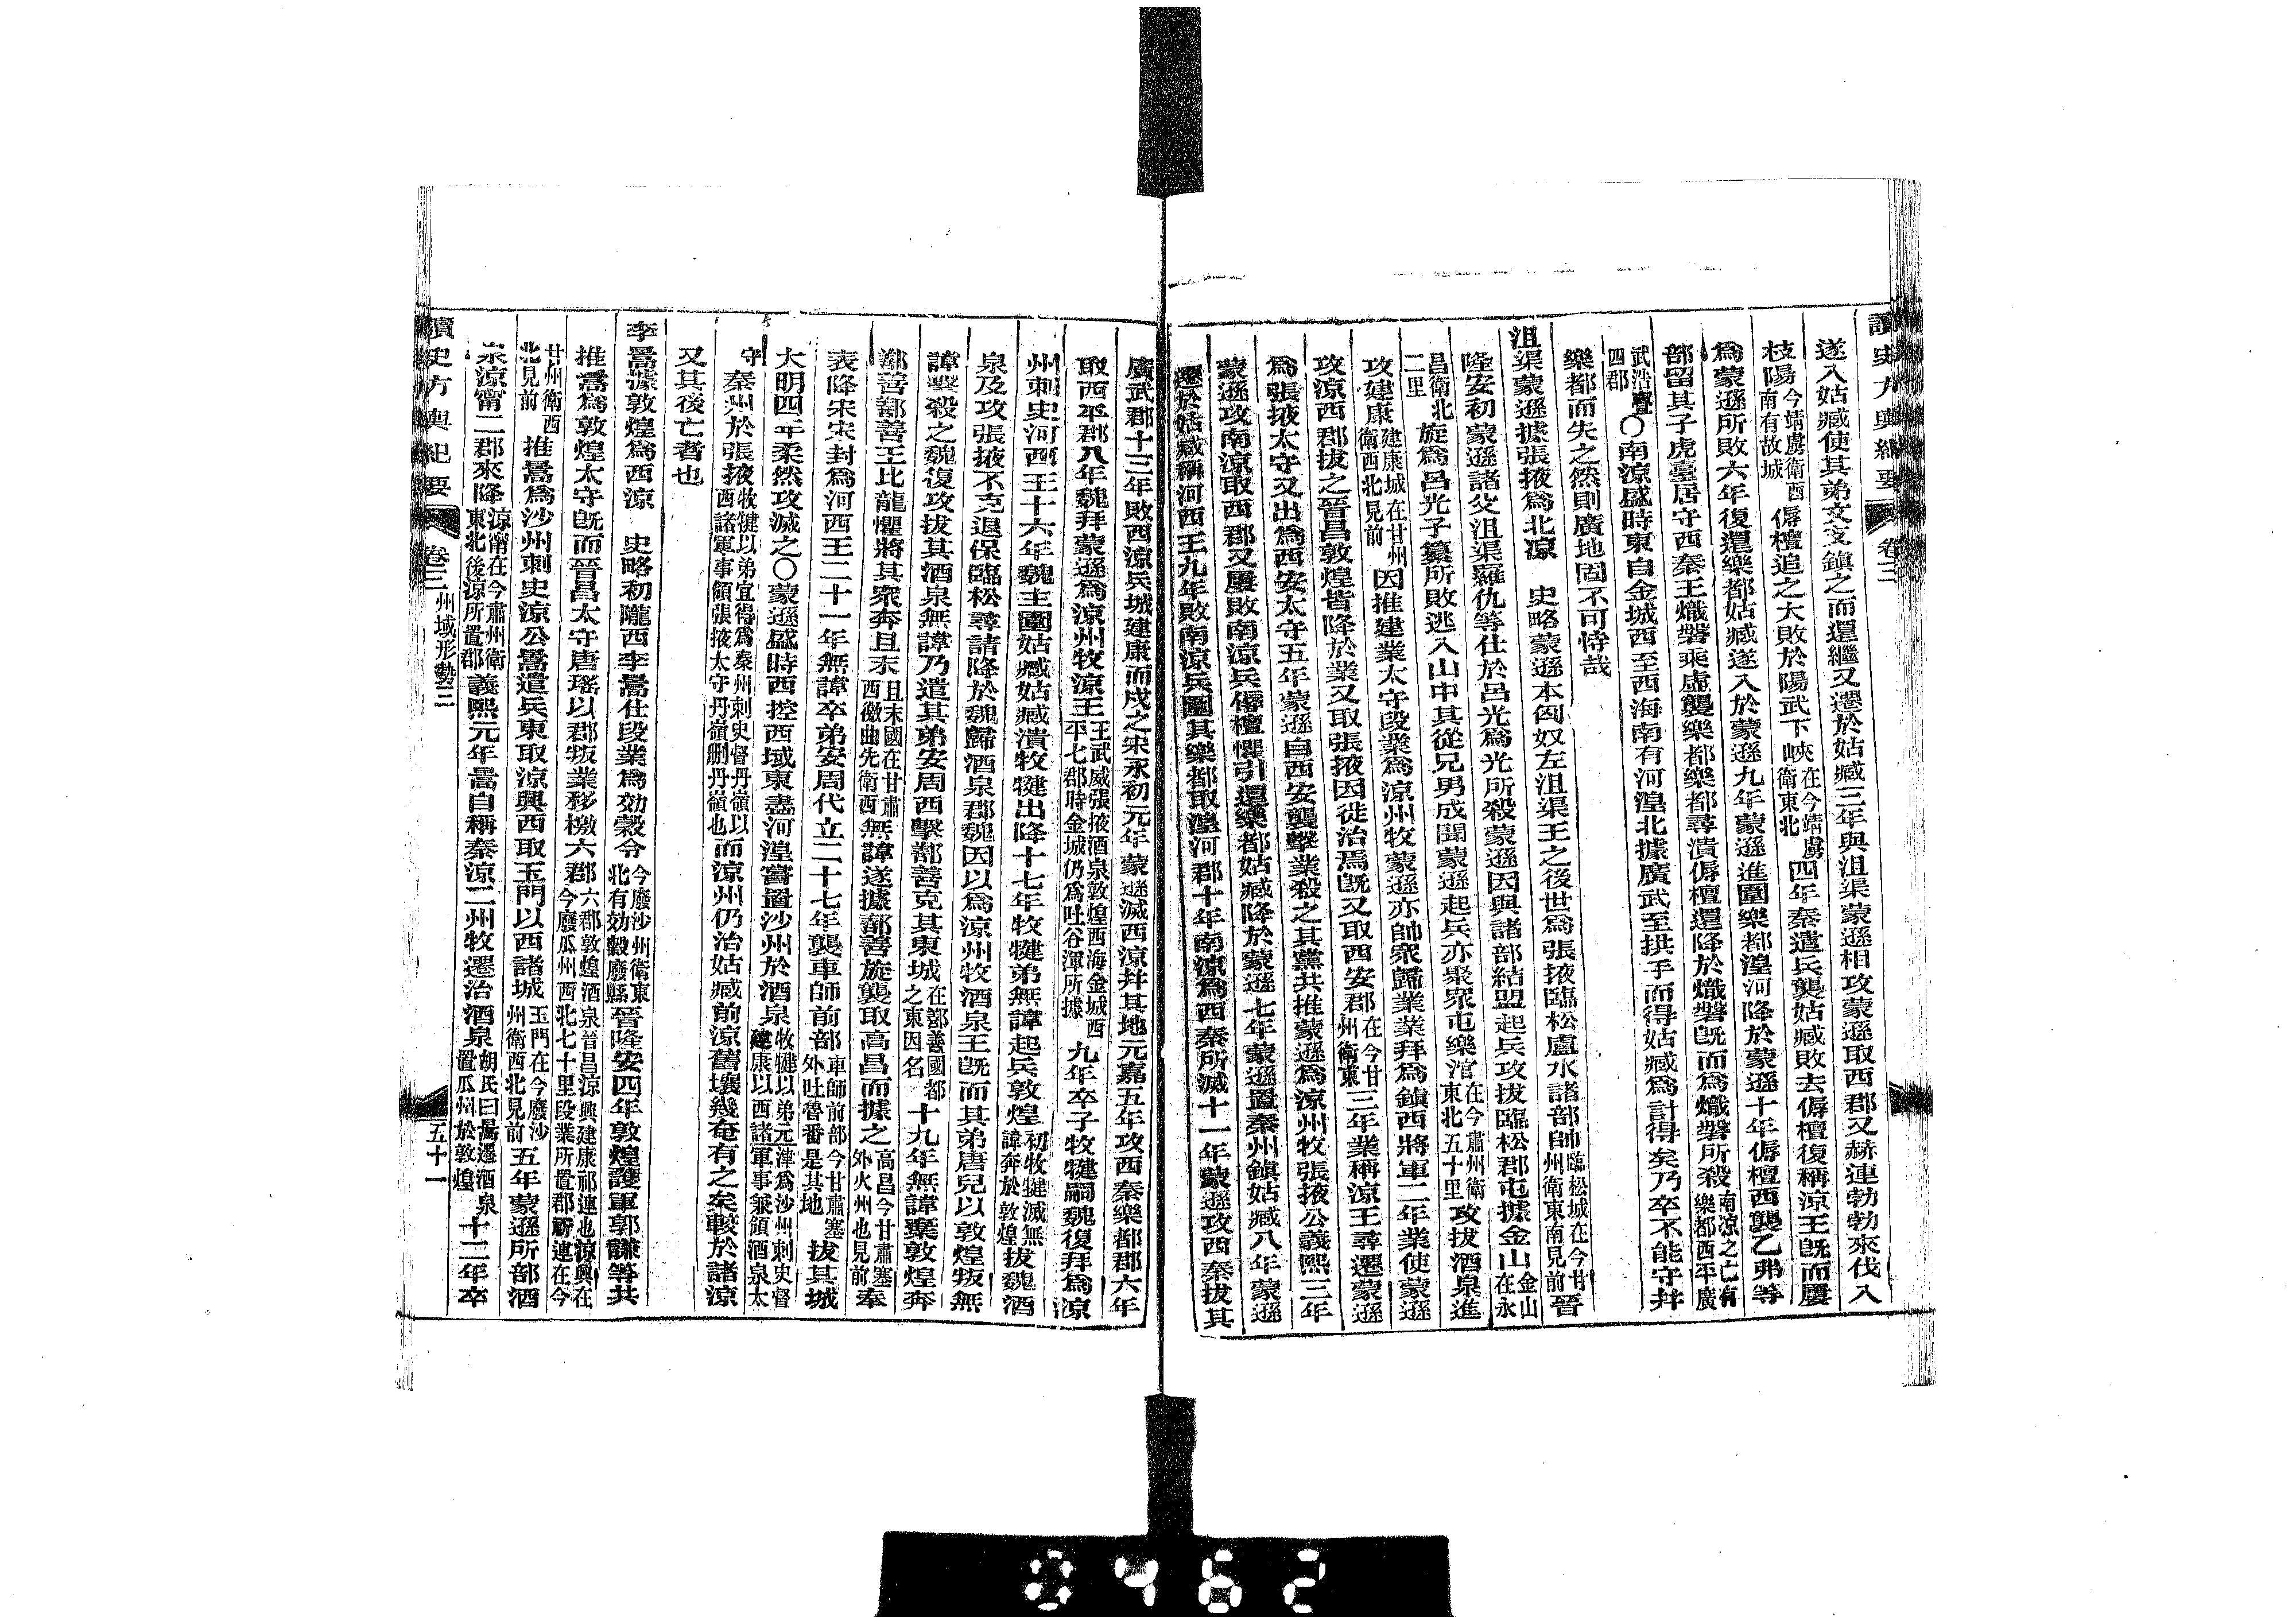 讀史方輿紀要 卷三
遂入姑臧使其弟文支鎮之而還繼又遷於姑臧三年與沮渠蒙遜相攻蒙遜取西郡又赫連勃勃來伐入
枝陽今靖虜衛西南有故城傉檀追之大敗於陽武下峽在今靖虜衛東北四年秦遣兵襲姑臧敗去傉檀復稱涼王既而屢
爲蒙遜所敗六年復還樂都姑臧遂入於蒙遜九年蒙遜進圍樂都湟河降於蒙遜十年傉檀西襲乙弗等
部留其子虎臺居守西秦王熾磐乘虛襲樂都樂都尋潰傉檀還降於熾磐既而爲熾磐所殺南涼之亡有樂都西平廣
武浩亹四郡〇南涼盛時東自金城西至西海南有河湟北據廣武至拱手而得姑臧爲計得矣乃卒不能守幷
樂都而失之然則廣地固不可恃哉
沮渠蒙遜據張掖爲北涼 史略蒙遜本匈奴左沮渠王之後世爲張掖臨松盧水諸部帥臨松城在今甘州衛東南見前晉
隆安初蒙遜諸父沮渠羅仇等仕於呂光爲光所殺蒙遜因與諸部結盟起兵攻拔臨松郡屯據金山金山在永
昌衛北二里旋爲呂光子纂所敗逃入山中其從兄男成聞蒙遜起兵亦聚衆屯樂涫在今肅州衛東北五十里攻拔酒泉進
攻建康建康城在甘州衛西北見前因推建業太守段業爲涼州牧蒙遜亦帥衆歸業業拜爲鎮西將軍二年業使蒙遜
攻涼西郡拔之晉昌敦煌皆降於業又取張掖因徙治焉既又取西安郡在今甘州衛東三年業稱涼王尋遷蒙遜
爲張掖太守又出爲西安太守五年蒙遜自西安襲擊業殺之其黨共推蒙遜爲涼州牧張掖公義熙三年
蒙遜攻南涼取西郡又屢敗南涼兵傉檀懼引還樂都姑臧降於蒙遜七年蒙遜置秦州鎮姑臧八年蒙遜
遷於姑臧稱河西王九年敗南涼兵圍其樂都取湟河郡十年南涼爲西秦所滅十一年蒙遜攻西秦拔其
廣武郡十三年敗西涼兵城建康而戍之宋永初元年蒙遜滅西涼幷其地元嘉五年攻西秦樂都郡六年
取西平郡八年魏拜蒙遜爲涼州牧涼王王武威張掖酒泉敦煌西海金城西平七郡時金城仍爲吐谷渾所據九年卒子牧犍嗣魏復拜爲涼
州刺史河西王十六年魏主圍姑臧姑臧潰牧犍出降十七年牧犍弟無諱起兵敦煌初牧犍滅無諱奔於敦煌拔魏酒
泉及攻張掖不克退保臨松尋請降於魏歸酒泉郡魏因以爲涼州牧酒泉王既而其弟唐兒以敦煌叛無
諱擊殺之魏復攻拔其酒泉無諱乃遣其弟安周西擊鄯善克其東城在鄯善國都之東因名十九年無諱棄敦煌奔
鄯善鄯善王比龍懼將其衆奔且末且末國在甘肅西徼曲先衛西無諱遂據鄯善旋襲取高昌而據之高昌今甘肅塞外火州也見前奉
表降宋宋封爲河西王二十一年無諱卒弟安周代立二十七年襲車師前部車師前部今甘肅塞外吐魯番是其地拔其城
大明四年柔然攻滅之〇蒙遜盛時西控西域東盡河湟嘗置沙州於酒泉牧犍以弟元津爲沙州刺史督建康以西諸軍事兼領酒泉太
守秦州於張掖牧犍以弟宜得爲秦州刺史督丹嶺以西諸軍事領張掖太守丹嶺刪丹嶺也而涼州仍治姑臧前涼舊壤幾奄有之矣較於諸涼
又其後亡者也
李暠據敦煌爲西涼 史略初隴西李暠仕段業爲効穀令今廢沙州衛東北有効穀廢縣晉隆安四年敦煌護軍郭謙等共
推暠爲敦煌太守既而晉昌太守唐瑤以郡叛業移檄六郡六郡敦煌酒泉晉昌涼興建康祁連也涼興在今廢瓜州西北七十里段業所置郡祈連在今
甘州衛西北見前推暠爲沙州刺史涼公暠遣兵東取涼興西取玉門以西諸城玉門在今廢沙州衛西北見前五年蒙遜所部酒
泉涼甯二郡來降涼甯在今肅州衛東北後涼所置郡義熙元年暠自稱秦涼二州牧遷治酒泉胡氏曰暠遷酒泉置瓜州於敦煌十二年卒
讀史方輿紀要 卷三 州域形勢三 五十一
0462